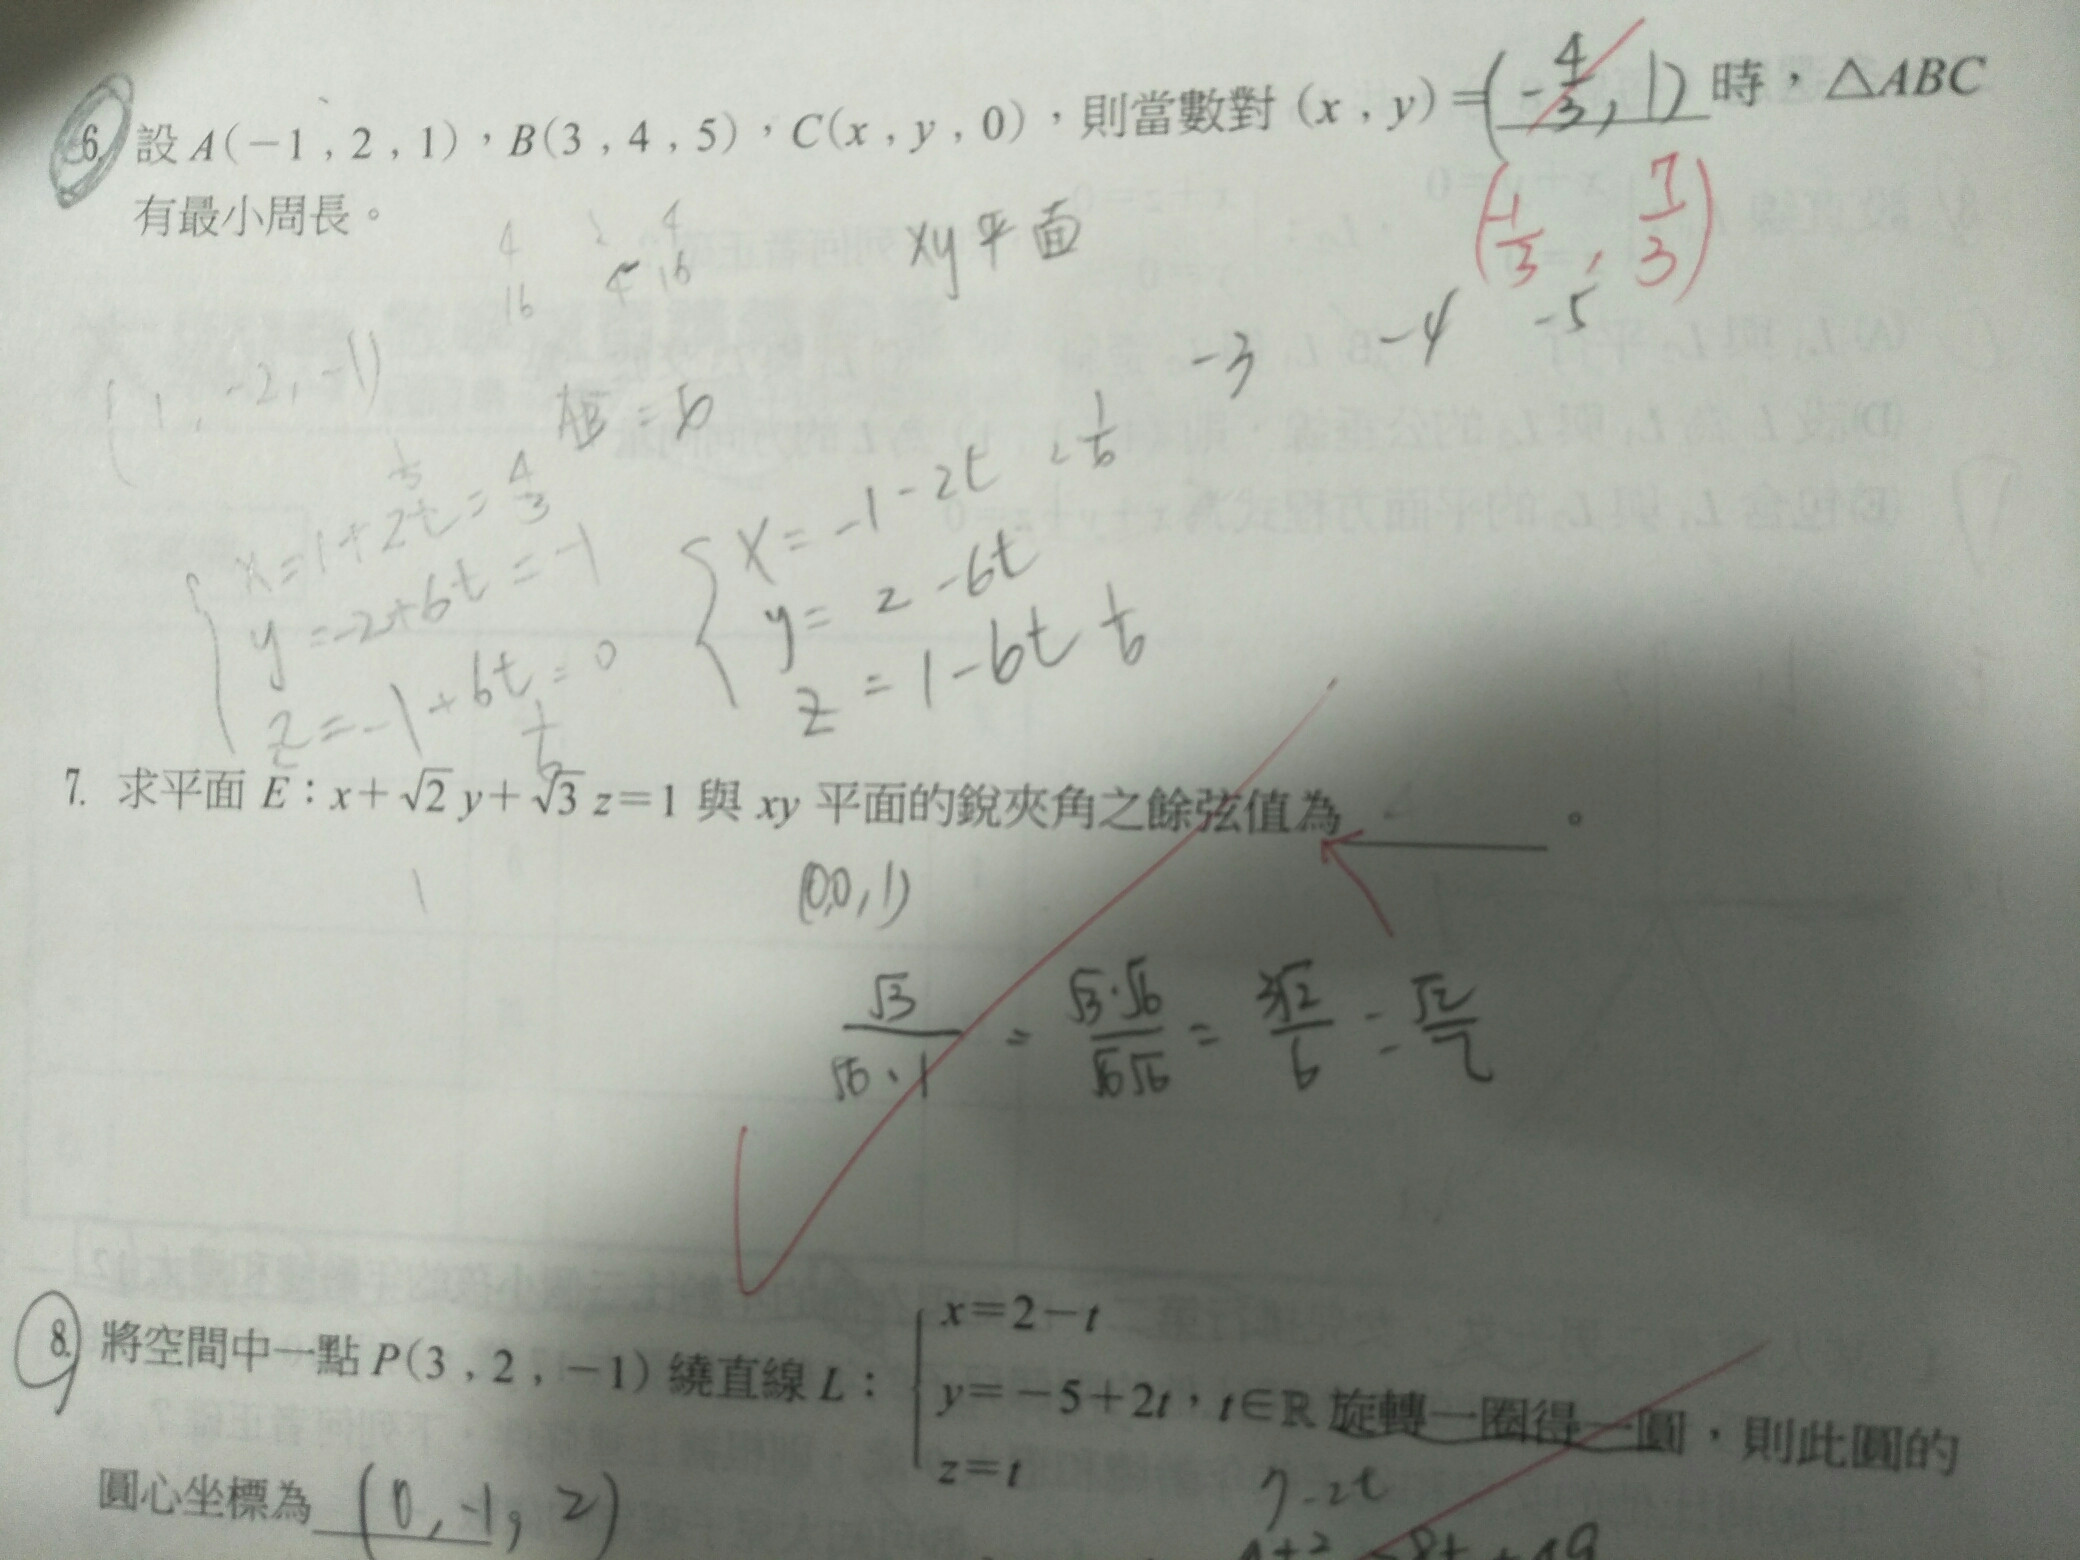 6. 設 A(−1 , 2 , 1)，B(3 , 4 , 5)，C(x , y , 0)，則當數對 (x , y)=(-4/3, 1) 時，△ABC
有最小周長。
(-1/3, 7/3)
4 2 4
16 4 16
xy平面
-3 -4 -5
(1, -2, -1)
AB = 6
x=1+2t=4/3
y=-2+6t=-1
z=-1+6t=0
1/6
x=-1-2t
y=2-6t
z=1-6t 1/6
7. 求平面 E：x+√2 y+√3 z=1 與 xy 平面的銳夾角之餘弦值為 。
1
(0,0,1)
√3/√6·1 = √3·√6/√6√6 = 3√2/6 = √2/2
8. 將空間中一點 P(3 , 2 , −1) 繞直線 L：
x=2−t
y=−5+2t，t∈ℝ 旋轉一圈得一圓，則此圓的
z=t
7-2t
圓心坐標為 (0, -1, 2)